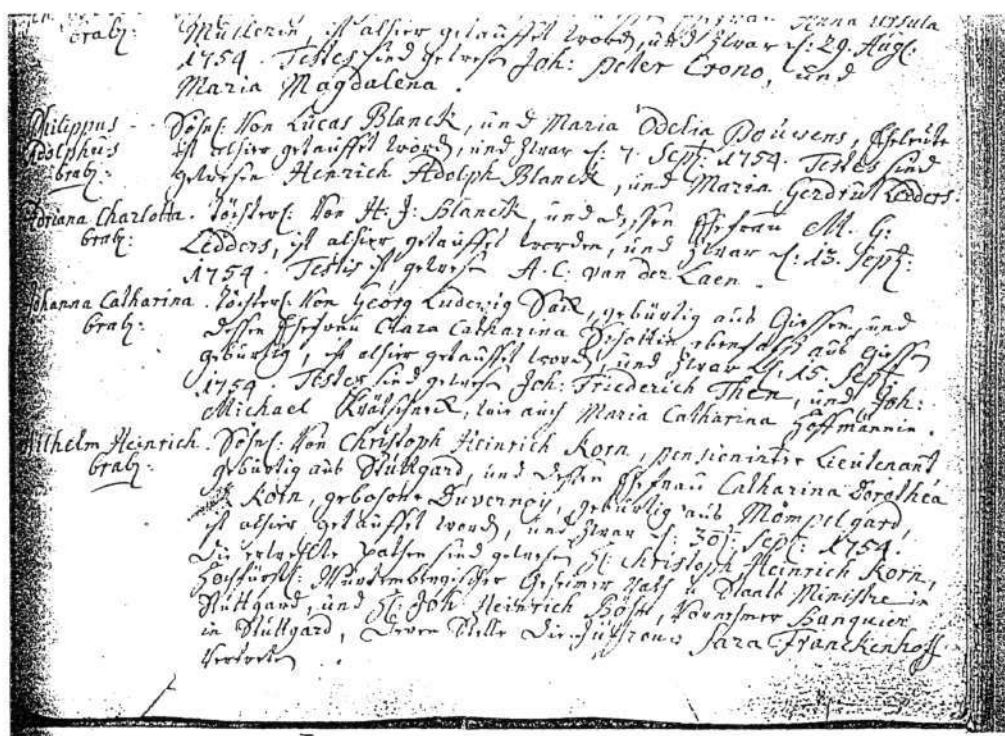 Anna Ursula
bratz: Müllerin, ist alhier getauffet word, und zwar d: 29. Aug:
1754. Testes sind gewesen Joh: Peter Crono, und
Maria Magdalena.
Philippus Söhnl: Von Lucas Blanck, und Maria Odelia Douwens, Eheleute
Adolphus ist alhier getauffet word, und zwar d: 7. Sept: 1754. Testes sind
bratz: gewesen Henrich Adolph Blanck, und Maria Gerdrut Ledders.
Adriana Charlotta. Töchterl: Von H: J: Blanck, und dessen Ehefrau M. G:
bratz: Ledders, ist alhier getauffet worden, und zwar d: 13. Sept:
1754. Testis ist gewesen A. C. van der Laen.
Johanna Catharina. Töchterl: Von Georg Ludewig, gebürtig aus Giessen, und
bratz: dessen Ehefrau Clara Catharina ebenfals aus Giessen
gebürtig, ist alhier getauffet word, und zwar d: 15. Sept:
1754. Testes sind gewesen Joh: Friederich Then, und Joh:
Michael, wie auch Maria Catharina Hoffmännin.
Wilhelm Heinrich. Söhnl: Von Christoph Heinrich Korn, pensioninter Lieutenant
bratz: gebürtig aus Stuttgard, und dessen Ehefrau Catharina Dorothea
Korn, gebohrne Duvernoy, gebürtig aus Mömpelgard,
ist alhier getauffet word, und zwar d: 30. Sept: 1754.
Die erwehlte Pathen sind gewesen H: Christoph Heinrich Korn,
Hochfürstl: Würtembergischer Geheimer Rath u Staats Ministre in
Stuttgard, und H: Joh: Heinrich, Vornehmer Banquier
in Stuttgard, deren Stelle die Sara Franckenhoff
Vertreten.